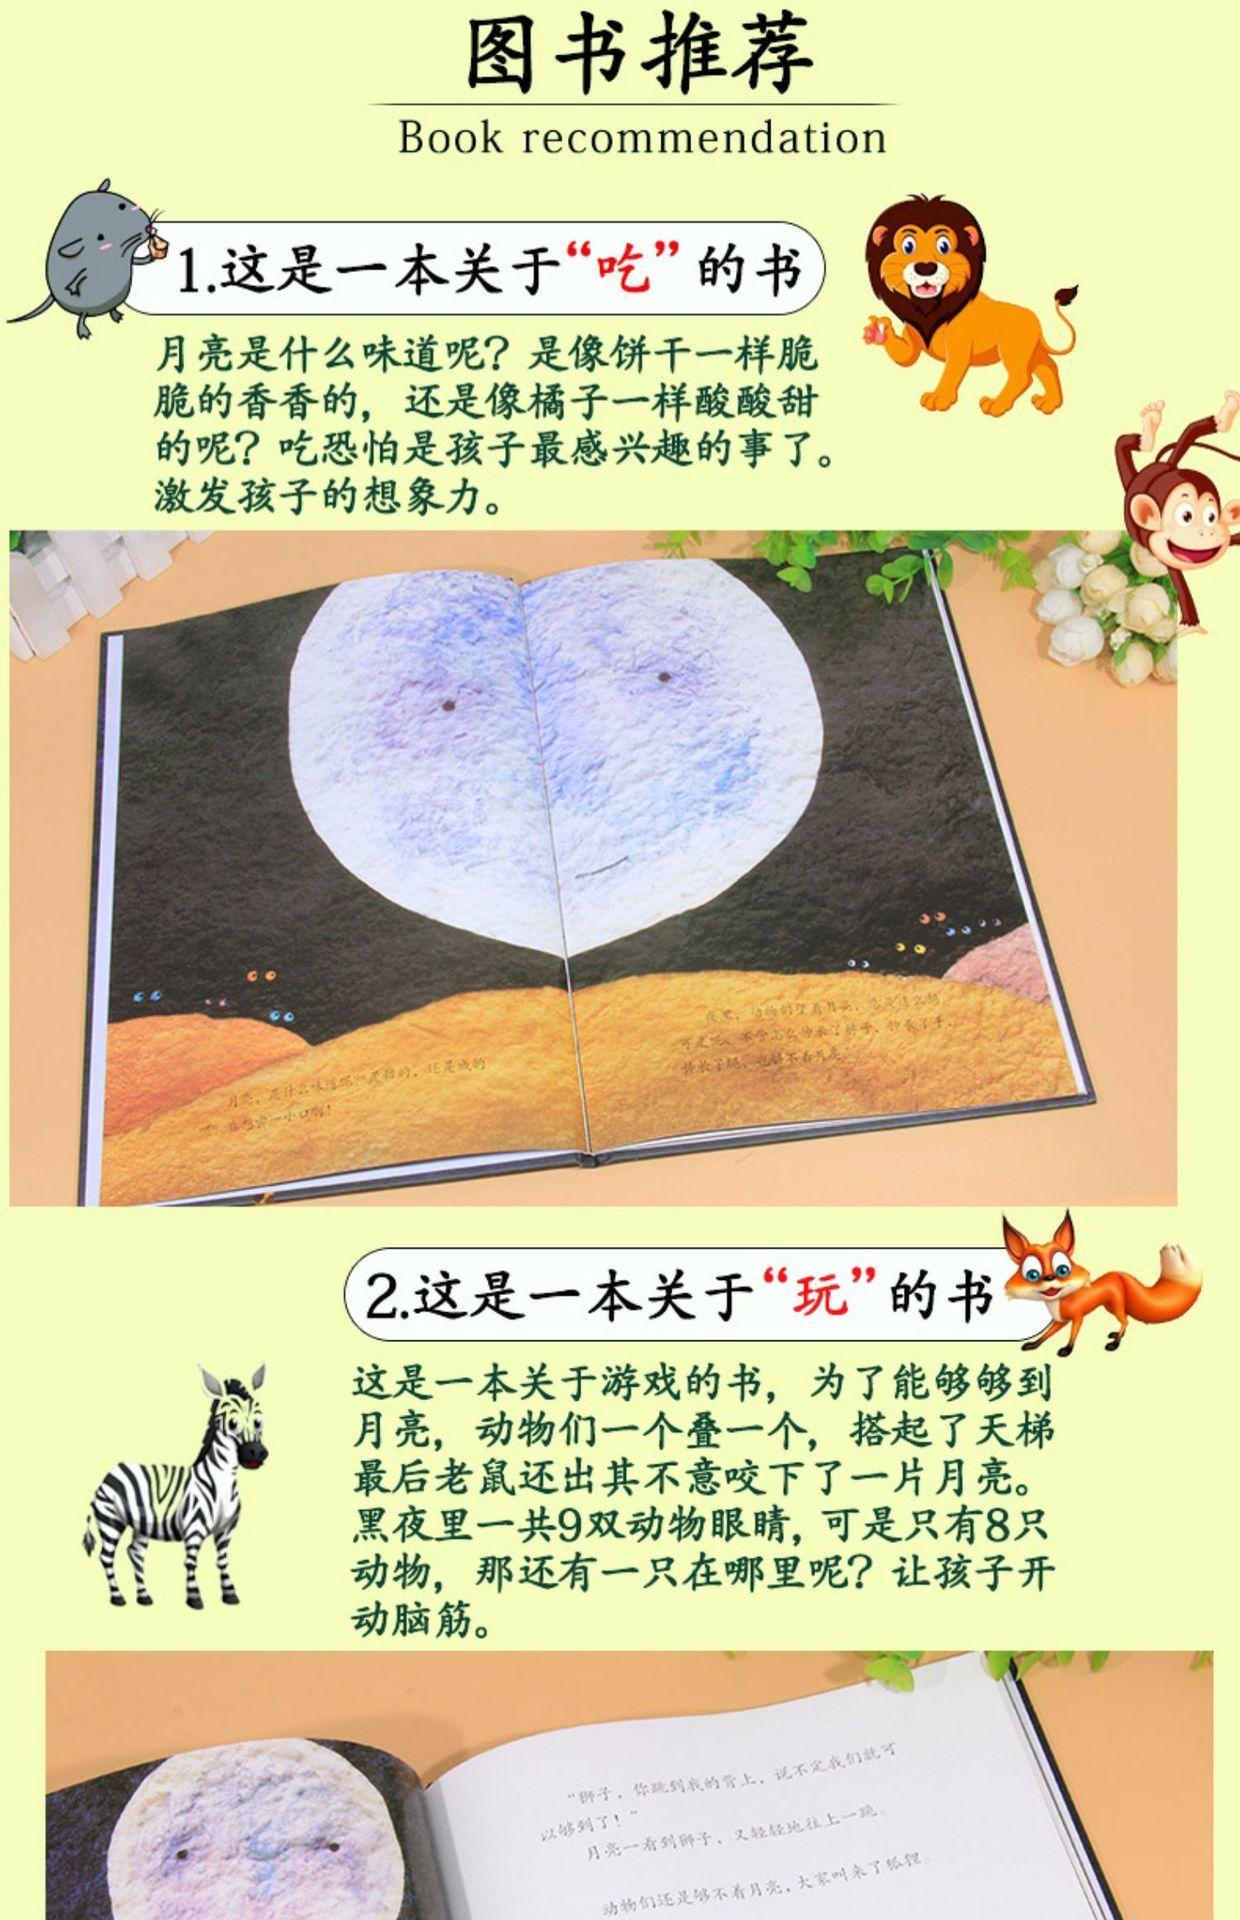 图书推荐
Book recommendation
1.这是一本关于“吃”的书
月亮是什么味道呢？是像饼干一样脆
脆的香香的，还是像橘子一样酸酸甜
的呢？吃恐怕是孩子最感兴趣的事了。
激发孩子的想象力。
夜里，动物们望着月亮，总是这么想。
可是呢，不管怎么伸长了脖子，伸长了手，
伸长了腿，也够不着月亮。
月亮，是什么味道呢？是甜的，还是咸的
呢？真想尝一小口啊！
2.这是一本关于“玩”的书
这是一本关于游戏的书，为了能够够到
月亮，动物们一个叠一个，搭起了天梯
最后老鼠还出其不意咬下了一片月亮。
黑夜里一共9双动物眼睛，可是只有8只
动物，那还有一只在哪里呢？让孩子开
动脑筋。
“狮子，你跳到我的背上，说不定我们就可
以够到了！”
月亮一看到狮子，又轻轻地往上一跳。
动物们还是够不着月亮，大家叫来了狐狸。